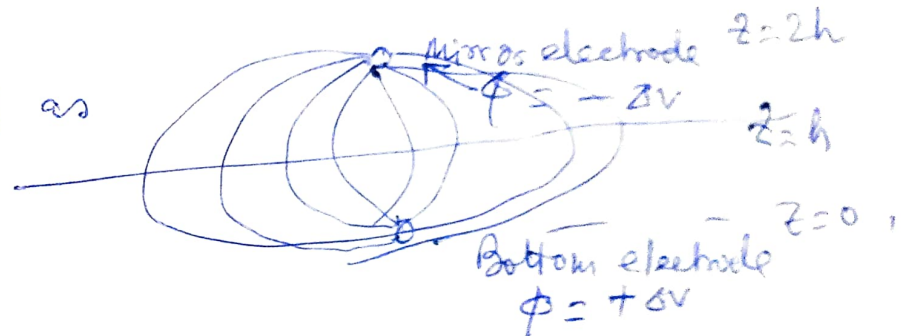 Mirror electrode z=2h
as
φ = - ΔV
z=h
z=0,
Bottom electrode
φ = + ΔV